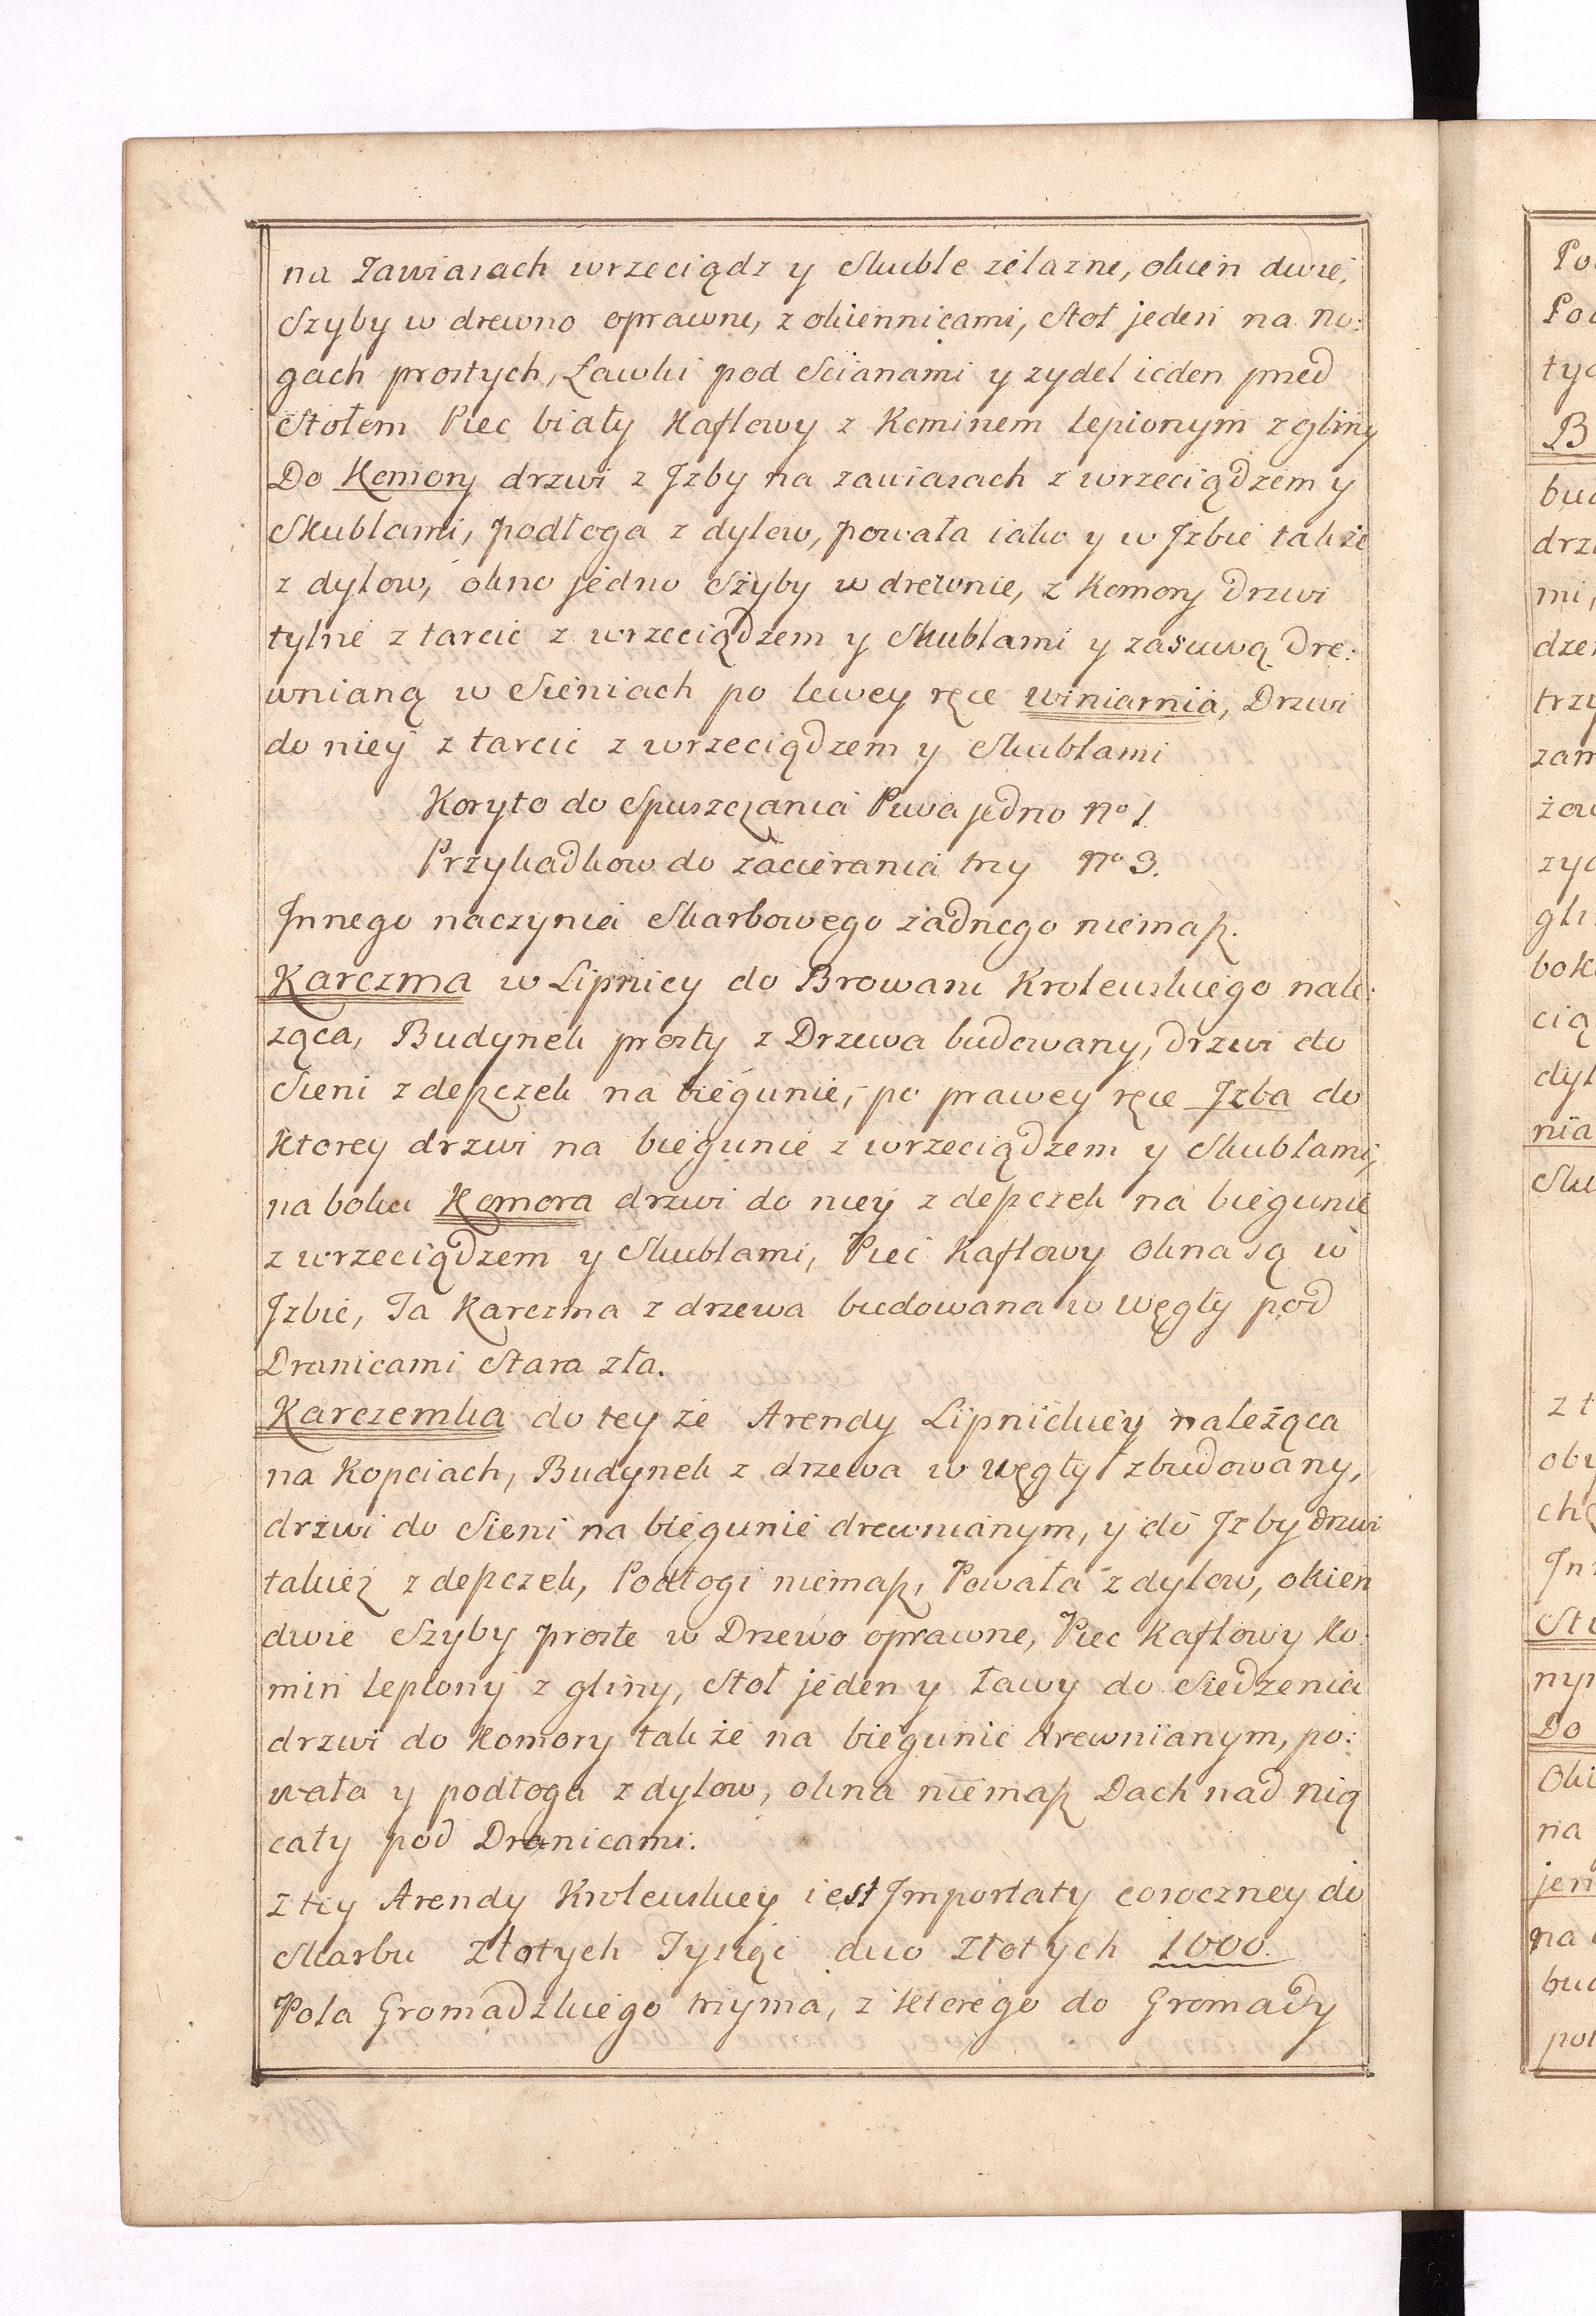 na Zawiasach wrzeciądz y Skuble żelazne, okien dwie,
Szyby w drewno oprawne, z okiennicami, Stoł jeden na no:
gach prostych, Ławki pod Scianami y zydel ieden przed
Stołem Piec biały Kaflowy z Kominem lepionym z gliny
Do Komory drzwi z Jzby na zawiasach z wrzeciądzem y
Skublami, podłoga z dylow, powała iako y w Jzbie takze
z dylow, okno jedno Szyby w drewnie, z Komory drzwi
tylne z tarcic z wrzeciądzem y Skublami y zasuwą dre:
wnianą w Sieniach po lewey ręce winiarnia, Drzwi
do niey z tarcic z wrzeciądzem y Skublami
Koryto do Spuszczania Piwa jedno No 1.
Przykadkow do zacierania trzy No 3.
Jnnego naczynia Skarbowego żadnego niemasz.
Karczma w Lipnicy do Browaru Krolewskiego nale:
ząca, Budynek prosty z Drzewa budowany, drzwi do
Sieni z depczek na biegunie, po prawey ręce Jzba do
Ktorey drzwi na biegunie z wrzeciądzem y Skublami,
na boku Komora drzwi do niey z depczek na biegunie
z wrzeciądzem y Skublami, Piec Kaflowy Okna są w
Jzbie, Ta Karczma z drzewa budowana w węgły pod
Dranicami Stara zła.
Karczemka do tey ze Arendy Lipnickiey należąca
na Kopciach, Budynek z drzewa w węgły zbudowany,
drzwi do Sieni na biegunie drewnianym, y do Jzby drzwi
takież z depczek, Podłogi niemasz, Powała z dylow, okien
dwie Szyby proste w Drzewo oprawne, Piec Kaflowy Ko:
min lepiony z gliny, Stoł jeden y Ławy do Siedzenia
drzwi do Komory także na biegunie drewnianym, po:
wała y podłoga z dylow, okna niemasz Dach nad nią
cały pod Dranicami.
Z tey Arendy Krolewskiey iest Jmportaty coroczney do
Skarbu Złotych Tysiąc duo Złotych 1000.
Pola Gromadzkiego trzyma, z Ktorego do Gromady